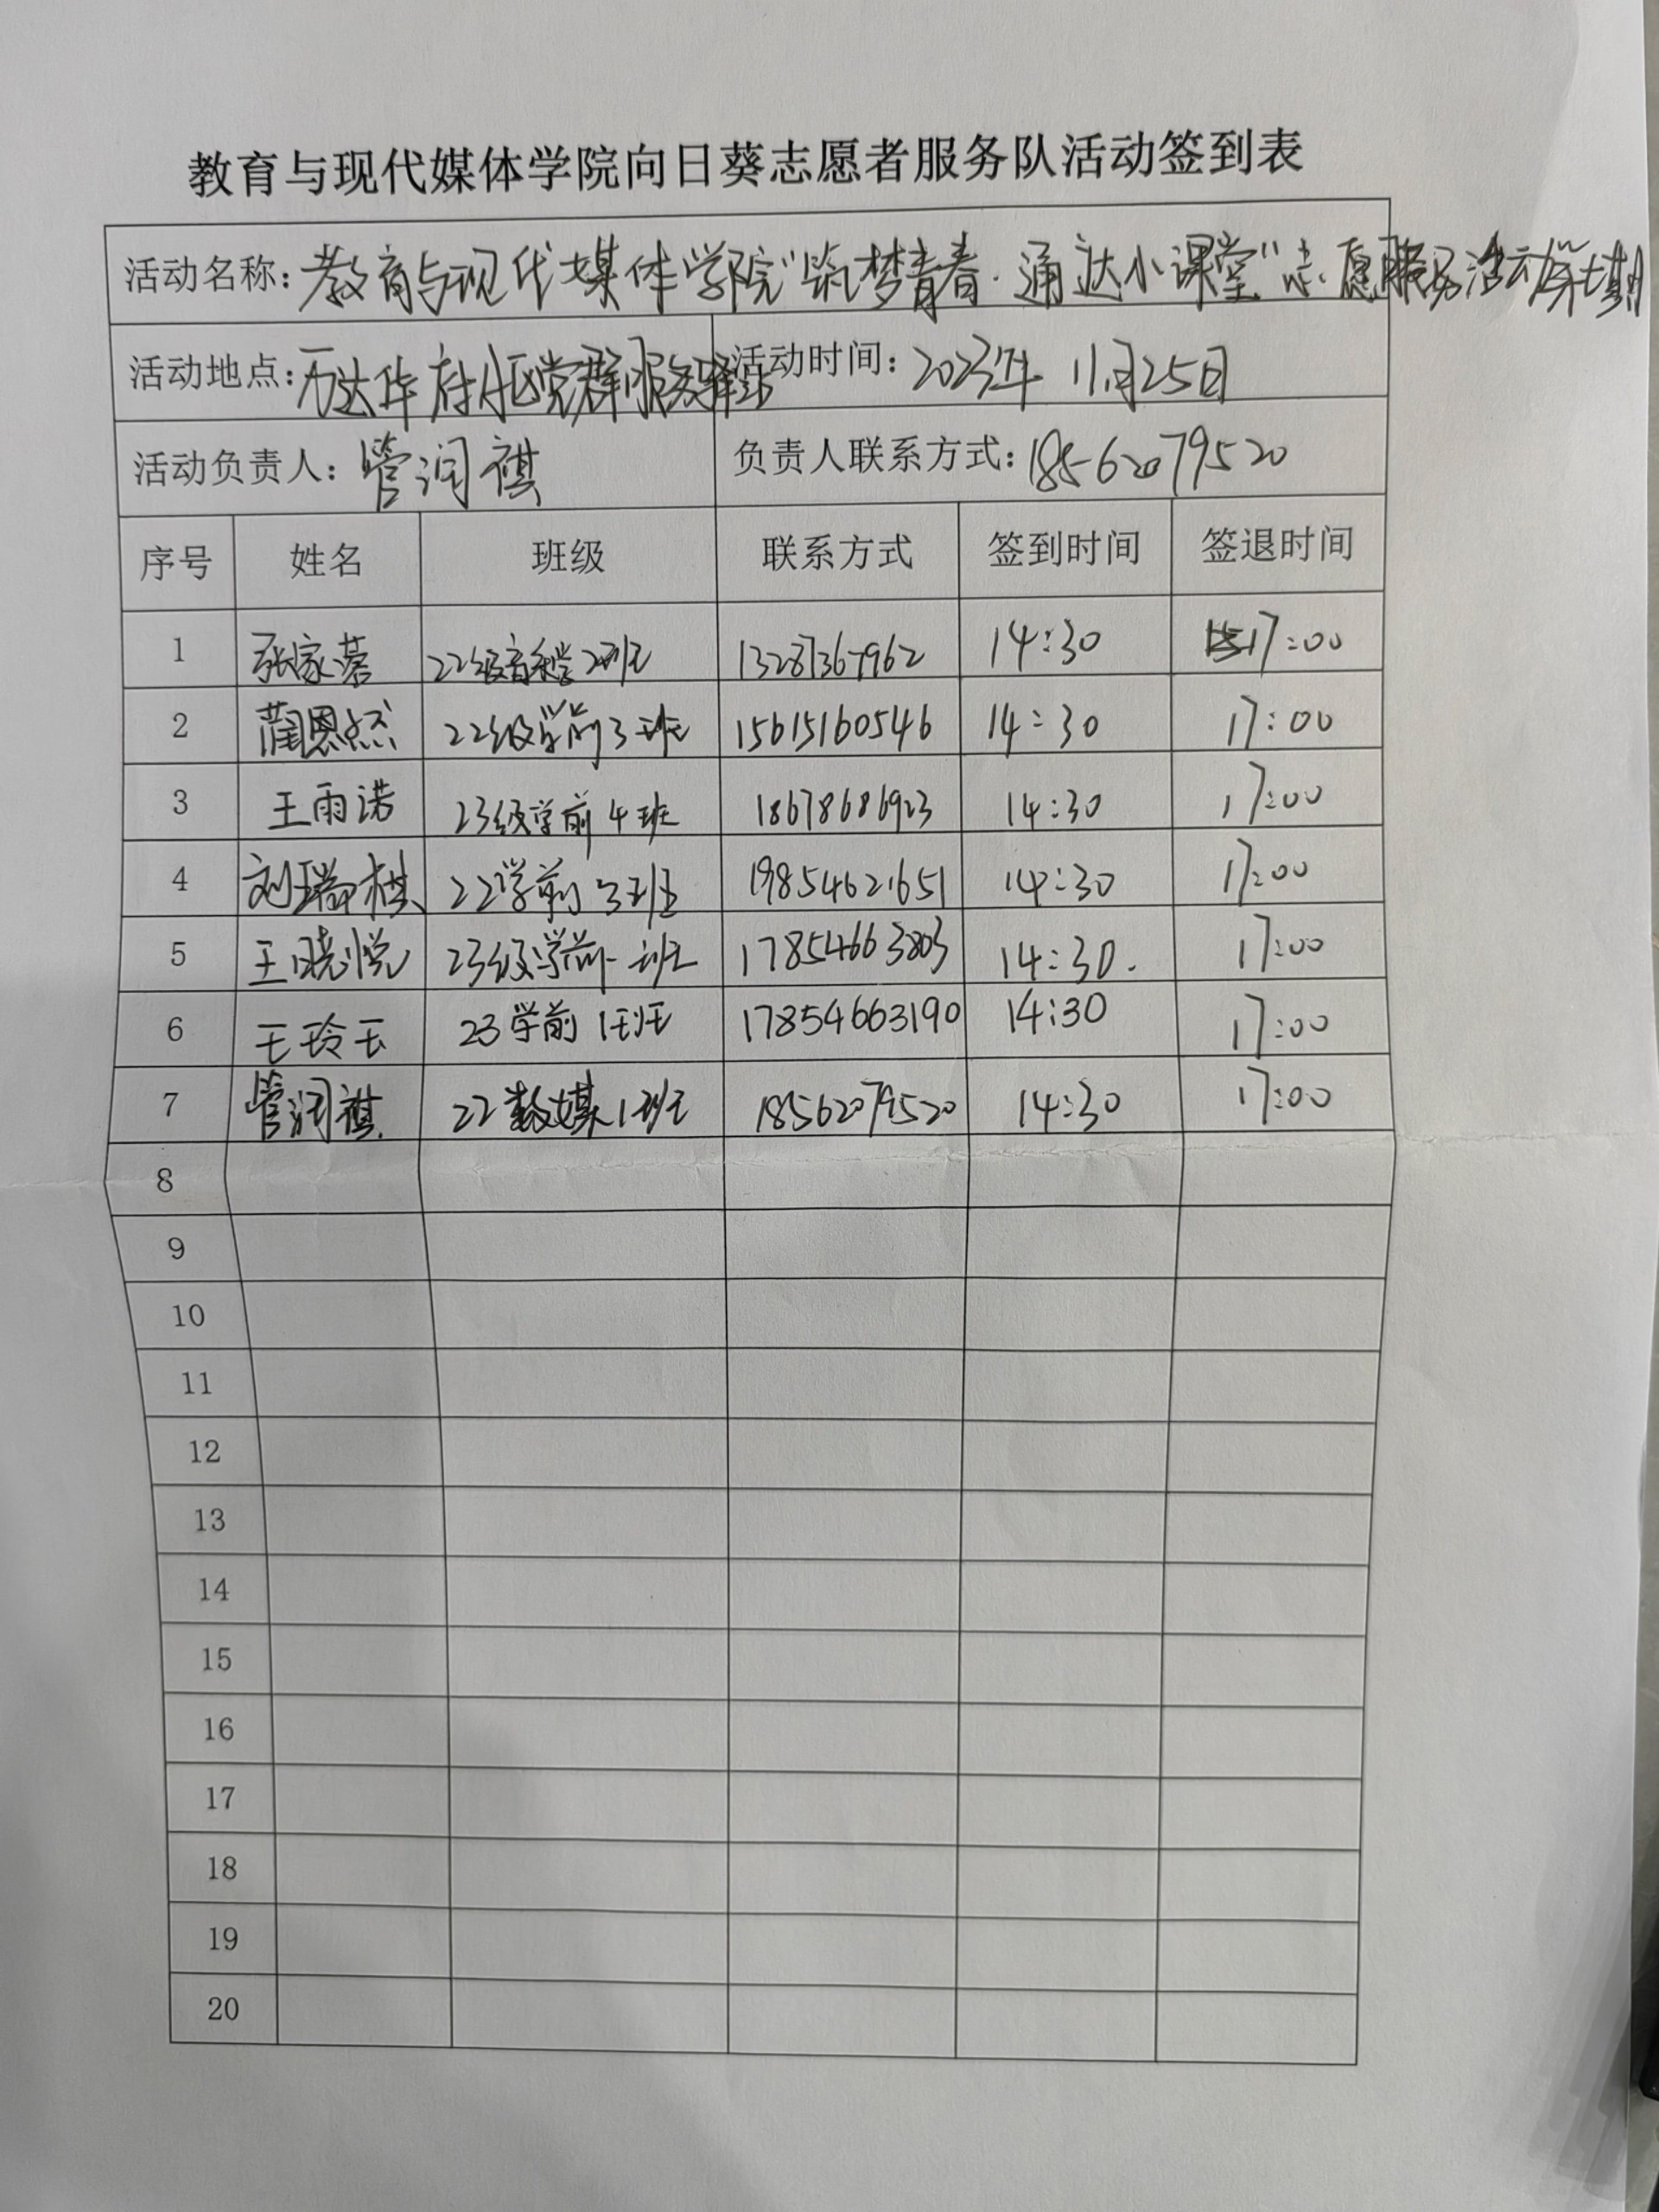 教育与现代媒体学院向日葵志愿者服务队活动签到表
活动名称：教育与现代媒体学院“筑梦青春·通达小课堂”志愿服务活动第七期
活动地点：万达华府小区党群服务驿站 活动时间：2023年11月25日
活动负责人：管润祺 负责人联系方式：18562079520
序号 姓名 班级 联系方式 签到时间 签退时间
1 张家蓉 22级 2班 13287367962 14:30 17:00
2 蔺恩杰 22级学前3班 15615160546 14:30 17:00
3 王雨诺 23级学前4班 18678686923 14:30 17:00
4 刘瑞棋 22学前3班 19854621651 14:30 17:00
5 王晓悦 23级学前一班 17854663803 14:30. 17:00
6 王玲玉 23学前1班 17854663190 14:30 17:00
7 管润祺 22数媒1班 18562079520 14:30 17:00
8
9
10
11
12
13
14
15
16
17
18
19
20